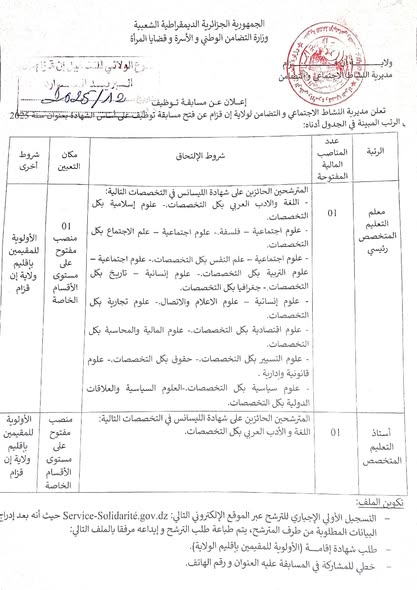 الجمهورية الجزائرية الديمقراطية الشعبية
وزارة التضامن الوطني و الأسرة و قضايا المرأة
مديرية النشاط الاجتماعي و التضامن
2025/12
إعلان عن مسابقة توظيف
تعلن مديرية النشاط الاجتماعي و التضامن لولاية إن قزام عن فتح مسابقة توظيف على أساس الشهادة بعنوان سنة 2025
الرتب المبينة في الجدول أدناه:
الرتبة
عدد المناصب المالية المفتوحة
شروط الإلتحاق
مكان التعيين
شروط أخرى
معلم التعليم المتخصص رئيسي
01
المترشحين الحائزين على شهادة الليسانس في التخصصات التالية:
- اللغة والادب العربي بكل التخصصات.- علوم إسلامية بكل
التخصصات.
- علوم اجتماعية – فلسفة.- علوم اجتماعية – علم الاجتماع بكل
التخصصات.
- علوم اجتماعية – علم النفس بكل التخصصات.- علوم اجتماعية –
علوم التربية بكل التخصصات.- علوم إنسانية – تاريخ بكل
التخصصات.- جغرافيا بكل التخصصات.
- علوم إنسانية – علوم الاعلام والاتصال.- علوم تجارية بكل
التخصصات.
- علوم اقتصادية بكل التخصصات.- علوم المالية والمحاسبة بكل
التخصصات.
- علوم التسيير بكل التخصصات.- حقوق بكل التخصصات.- علوم
قانونية وإدارية .
- علوم سياسية بكل التخصصات.-العلوم السياسية والعلاقات
الدولية بكل التخصصات.
01 منصب مفتوح على مستوى الأقسام الخاصة
الأولوية للمقيمين بإقليم ولاية إن قزام
أستاذ التعليم المتخصص
01
المترشحين الحائزين على شهادة الليسانس في التخصصات التالية:
اللغة و الأدب العربي بكل التخصصات.
منصب مفتوح على مستوى الأقسام الخاصة
الأولوية للمقيمين بإقليم ولاية إن قزام
تكوين الملف:
– التسجيل الأولي الإجباري للترشح عبر الموقع الإلكتروني التالي: Service-Solidarité.gov.dz حيث أنه بعد إدراج
البيانات المطلوبة من طرف المترشح، يتم طباعة طلب الترشح و إيداعه مرفقا بالملف التالي:
– طلب شهادة إقامة (الأولوية للمقيمين بإقليم الولاية).
– خطي للمشاركة في المسابقة عليه العنوان و رقم الهاتف.